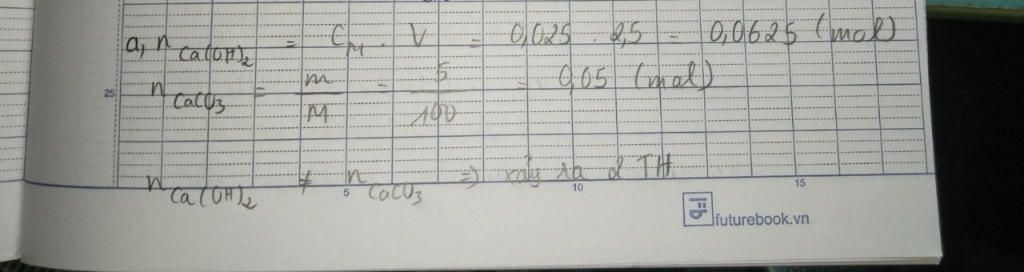 a, n Ca(OH)₂ = C_M . V = 0,025 . 2,5 = 0,0625 (mol)
25
n CaCO₃ = m/M = 5/100 = 0,05 (mol)
n Ca(OH)₂ ≠ n CaCO₃ => xảy ra 2 TH
5 10 15
futurebook.vn